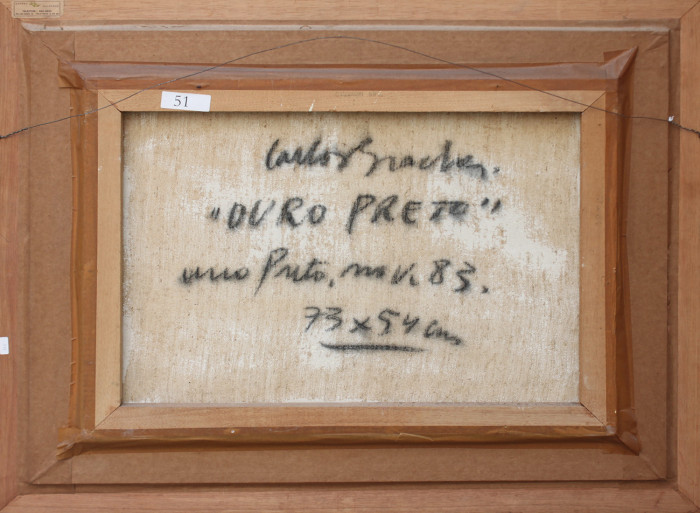 51
Carlos Bracher.
"OURO PRETO"
ouro Preto, nov. 83.
73 x 54 cm